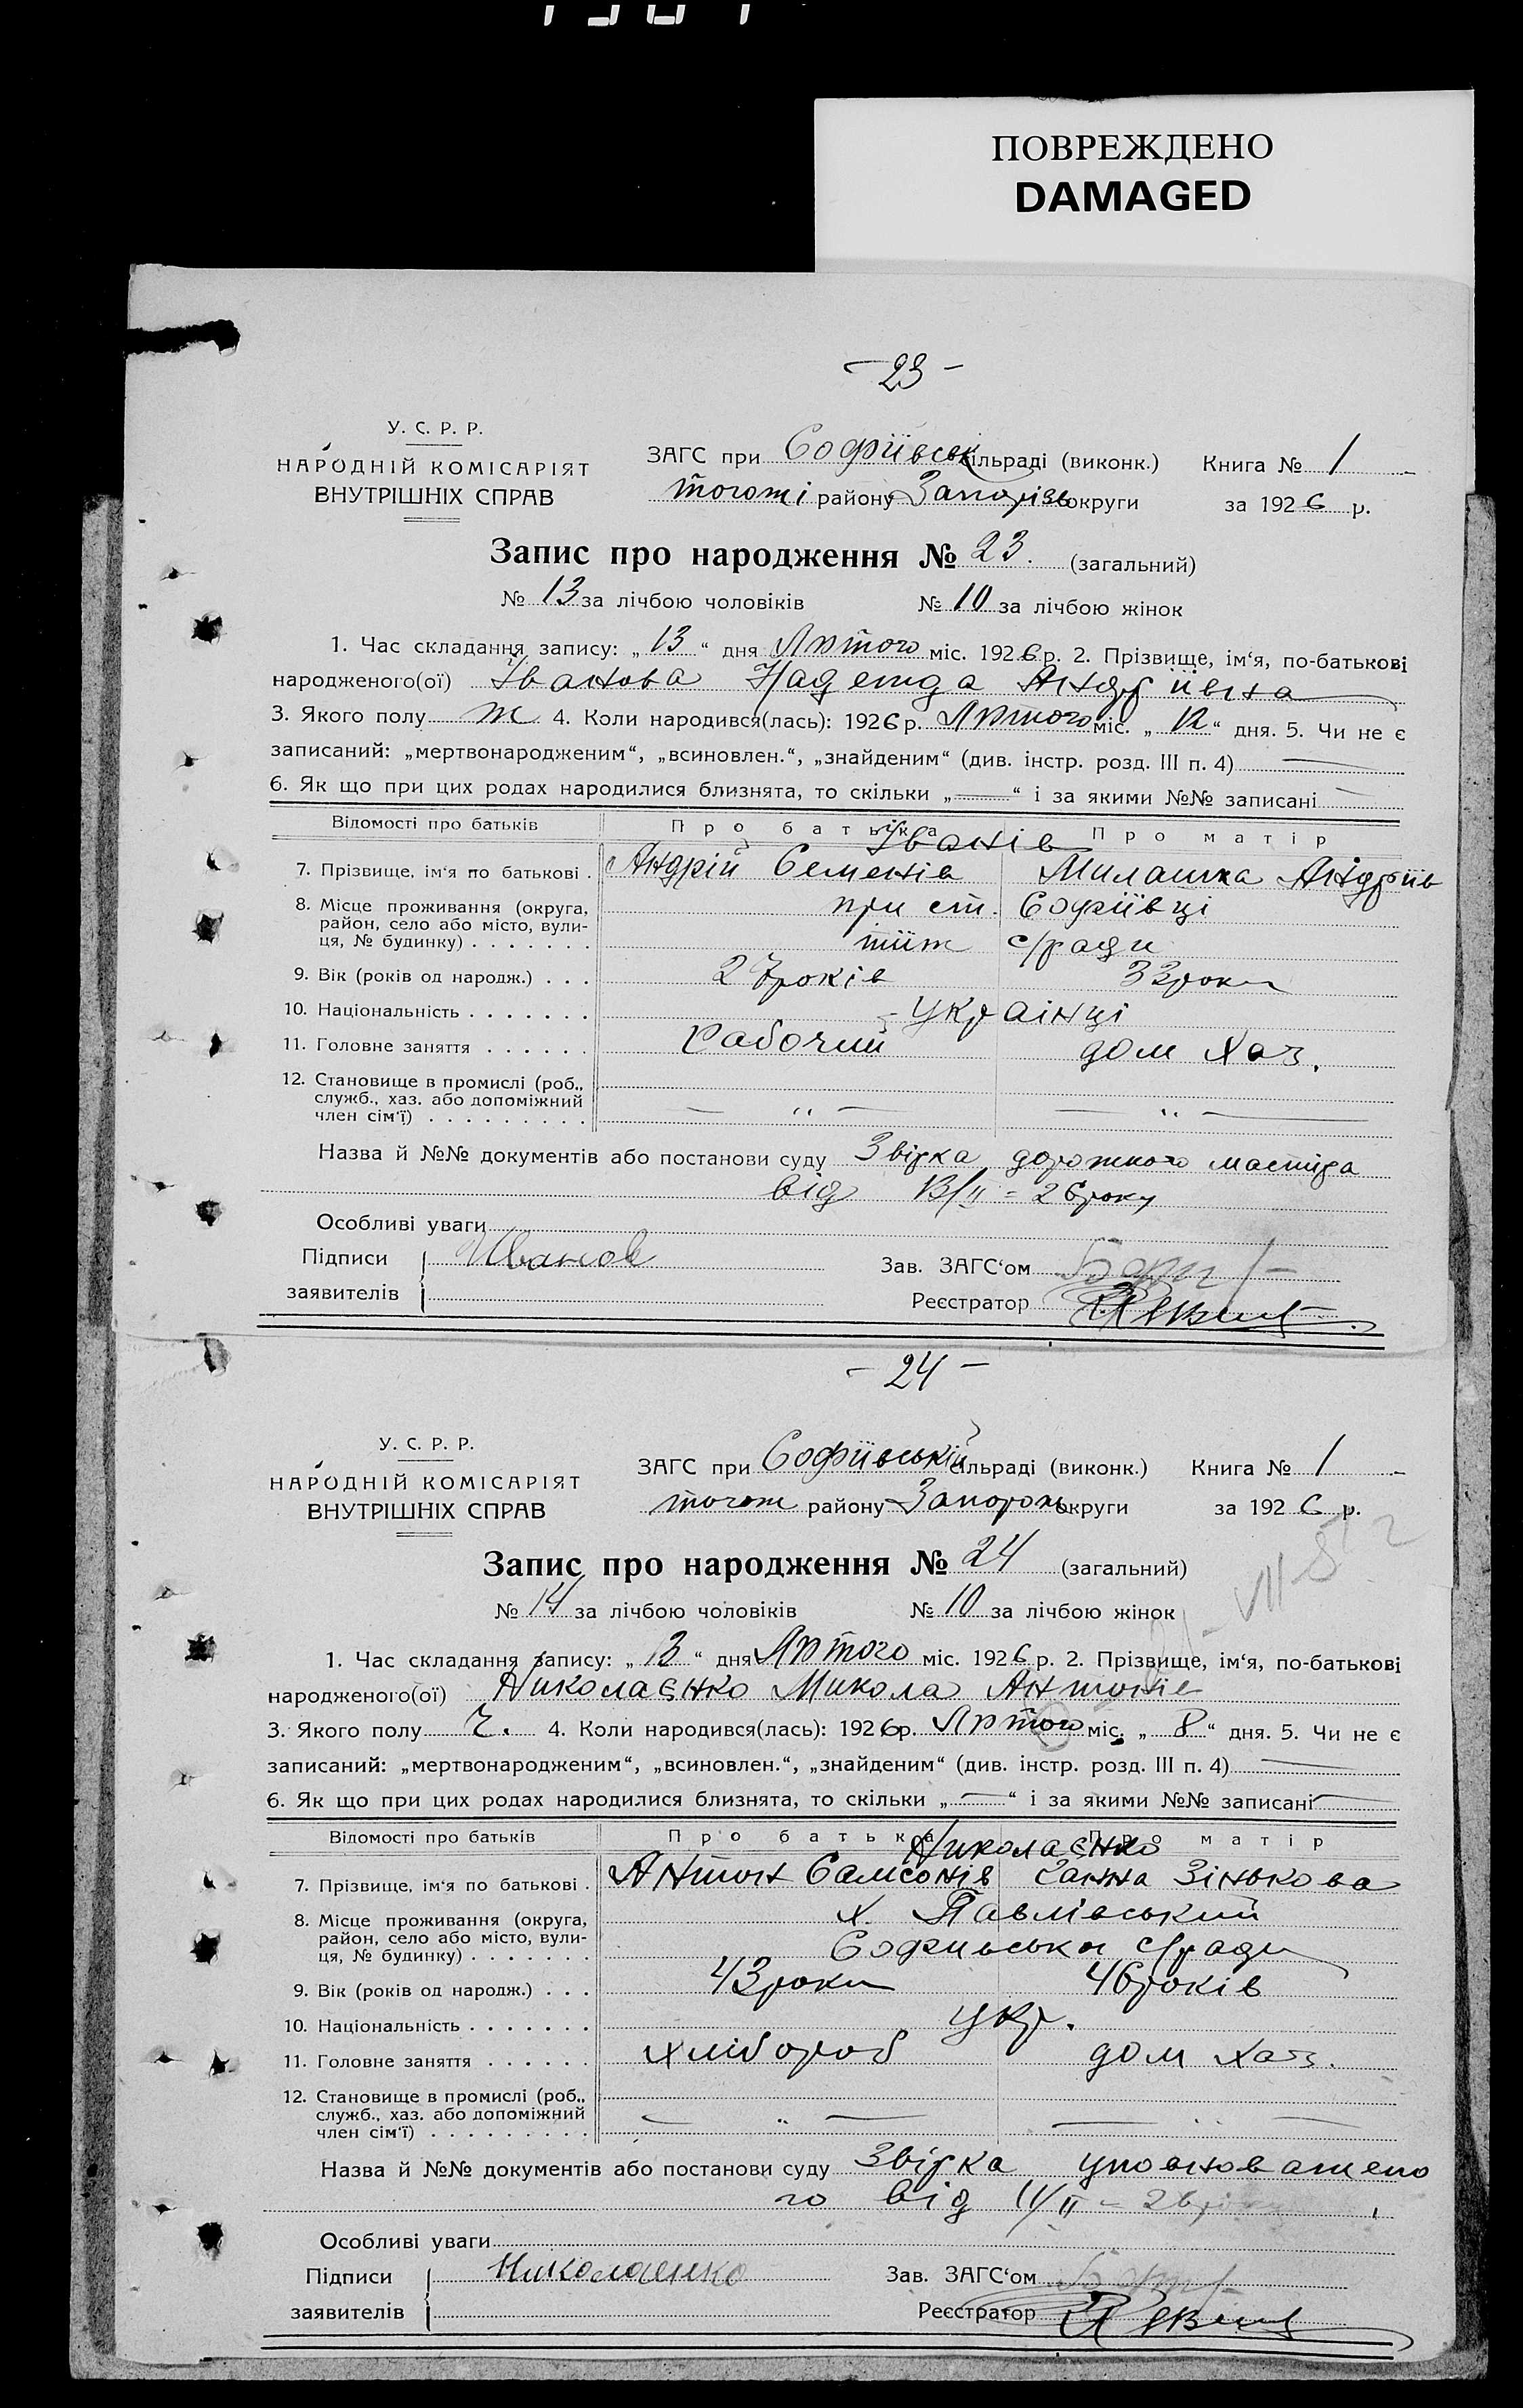 ПОВРЕЖДЕНО
DAMAGED
– 23 –
У. С. Р. Р.
НАРОДНІЙ КОМІСАРІЯТ
ВНУТРІШНІХ СПРАВ
ЗАГС при Софіївськ сільраді (виконк.) Книга № 1
тогож району Запорізь округи за 1926 р.
Запис про народження № 23. (загальний)
№ 13 за лічбою чоловіків № 10 за лічбою жінок
1. Час складання запису: „ 13 “ дня Лютого міс. 1926 р. 2. Прізвище, ім‘я, по-батькові
народженого(ої) Іванова Надежда Андріївна
3. Якого полу ж 4. Коли народився(лась): 1926 р. Лютого міс. „ 12 “ дня. 5. Чи не є
записаний: „мертвонародженим“, „всиновлен.“, „знайденим“ (див. інстр. розд. III п. 4) —
6. Як що при цих родах народилися близнята, то скільки „ — “ і за якими №№ записані —
Відомості про батьків Про батька Про матір
Іванів
7. Прізвище, ім‘я по батькові . Андрій Семенів Милашка Андріїв
8. Місце проживання (округа, при ст. Софіївці
район, село або місто, вули-
ця, № будинку) . . . . . . . тіїж с/ради
9. Вік (років од народж.) . . . 27 років 33 роки
10. Національність . . . . . . . українці
11. Головне заняття . . . . . . Рабочий дом хаз.
12. Становище в промислі (роб.,
служб., хаз. або допоміжний
член сім‘ї) . . . . . . . . . — „ — — „ —
Назва й №№ документів або постанови суду Звірка дорожного мастира
від 13/II = 26 року
Особливі уваги
Підписи Иванов Зав. ЗАГС‘ом
заявителів Реєстратор
– 24 –
У. С. Р. Р.
НАРОДНІЙ КОМІСАРІЯТ
ВНУТРІШНІХ СПРАВ
ЗАГС при Софіївській сільраді (виконк.) Книга № 1
тогож району Запорож округи за 1926 р.
Запис про народження № 24 (загальний)
№ 14 за лічбою чоловіків № 10 за лічбою жінок
1. Час складання запису: „ 13 “ дня Лютого міс. 1926 р. 2. Прізвище, ім‘я, по-батькові
народженого(ої) Николаєнко Микола Антонів
3. Якого полу ч. 4. Коли народився(лась): 1926 р. Лютого міс. „ 8 “ дня. 5. Чи не є
записаний: „мертвонародженим“, „всиновлен.“, „знайденим“ (див. інстр. розд. III п. 4) —
6. Як що при цих родах народилися близнята, то скільки „ — “ і за якими №№ записані —
Відомості про батьків Про батька Про матір
Николаєнко
7. Прізвище, ім‘я по батькові . Антон Самсонів Ганна Зінькова
8. Місце проживання (округа, х. Павлівський
район, село або місто, вули-
ця, № будинку) . . . . . . . с/ради
9. Вік (років од народж.) . . . 43 роки 46 років
10. Національність . . . . . . . укр.
11. Головне заняття . . . . . . хлібороб дом хаз.
12. Становище в промислі (роб.,
служб., хаз. або допоміжний
член сім‘ї) . . . . . . . . . — „ — — „ —
Назва й №№ документів або постанови суду Звірка уповноважено
го від 11/II = 26 року
Особливі уваги
Підписи Николаенко Зав. ЗАГС‘ом
заявителів Реєстратор